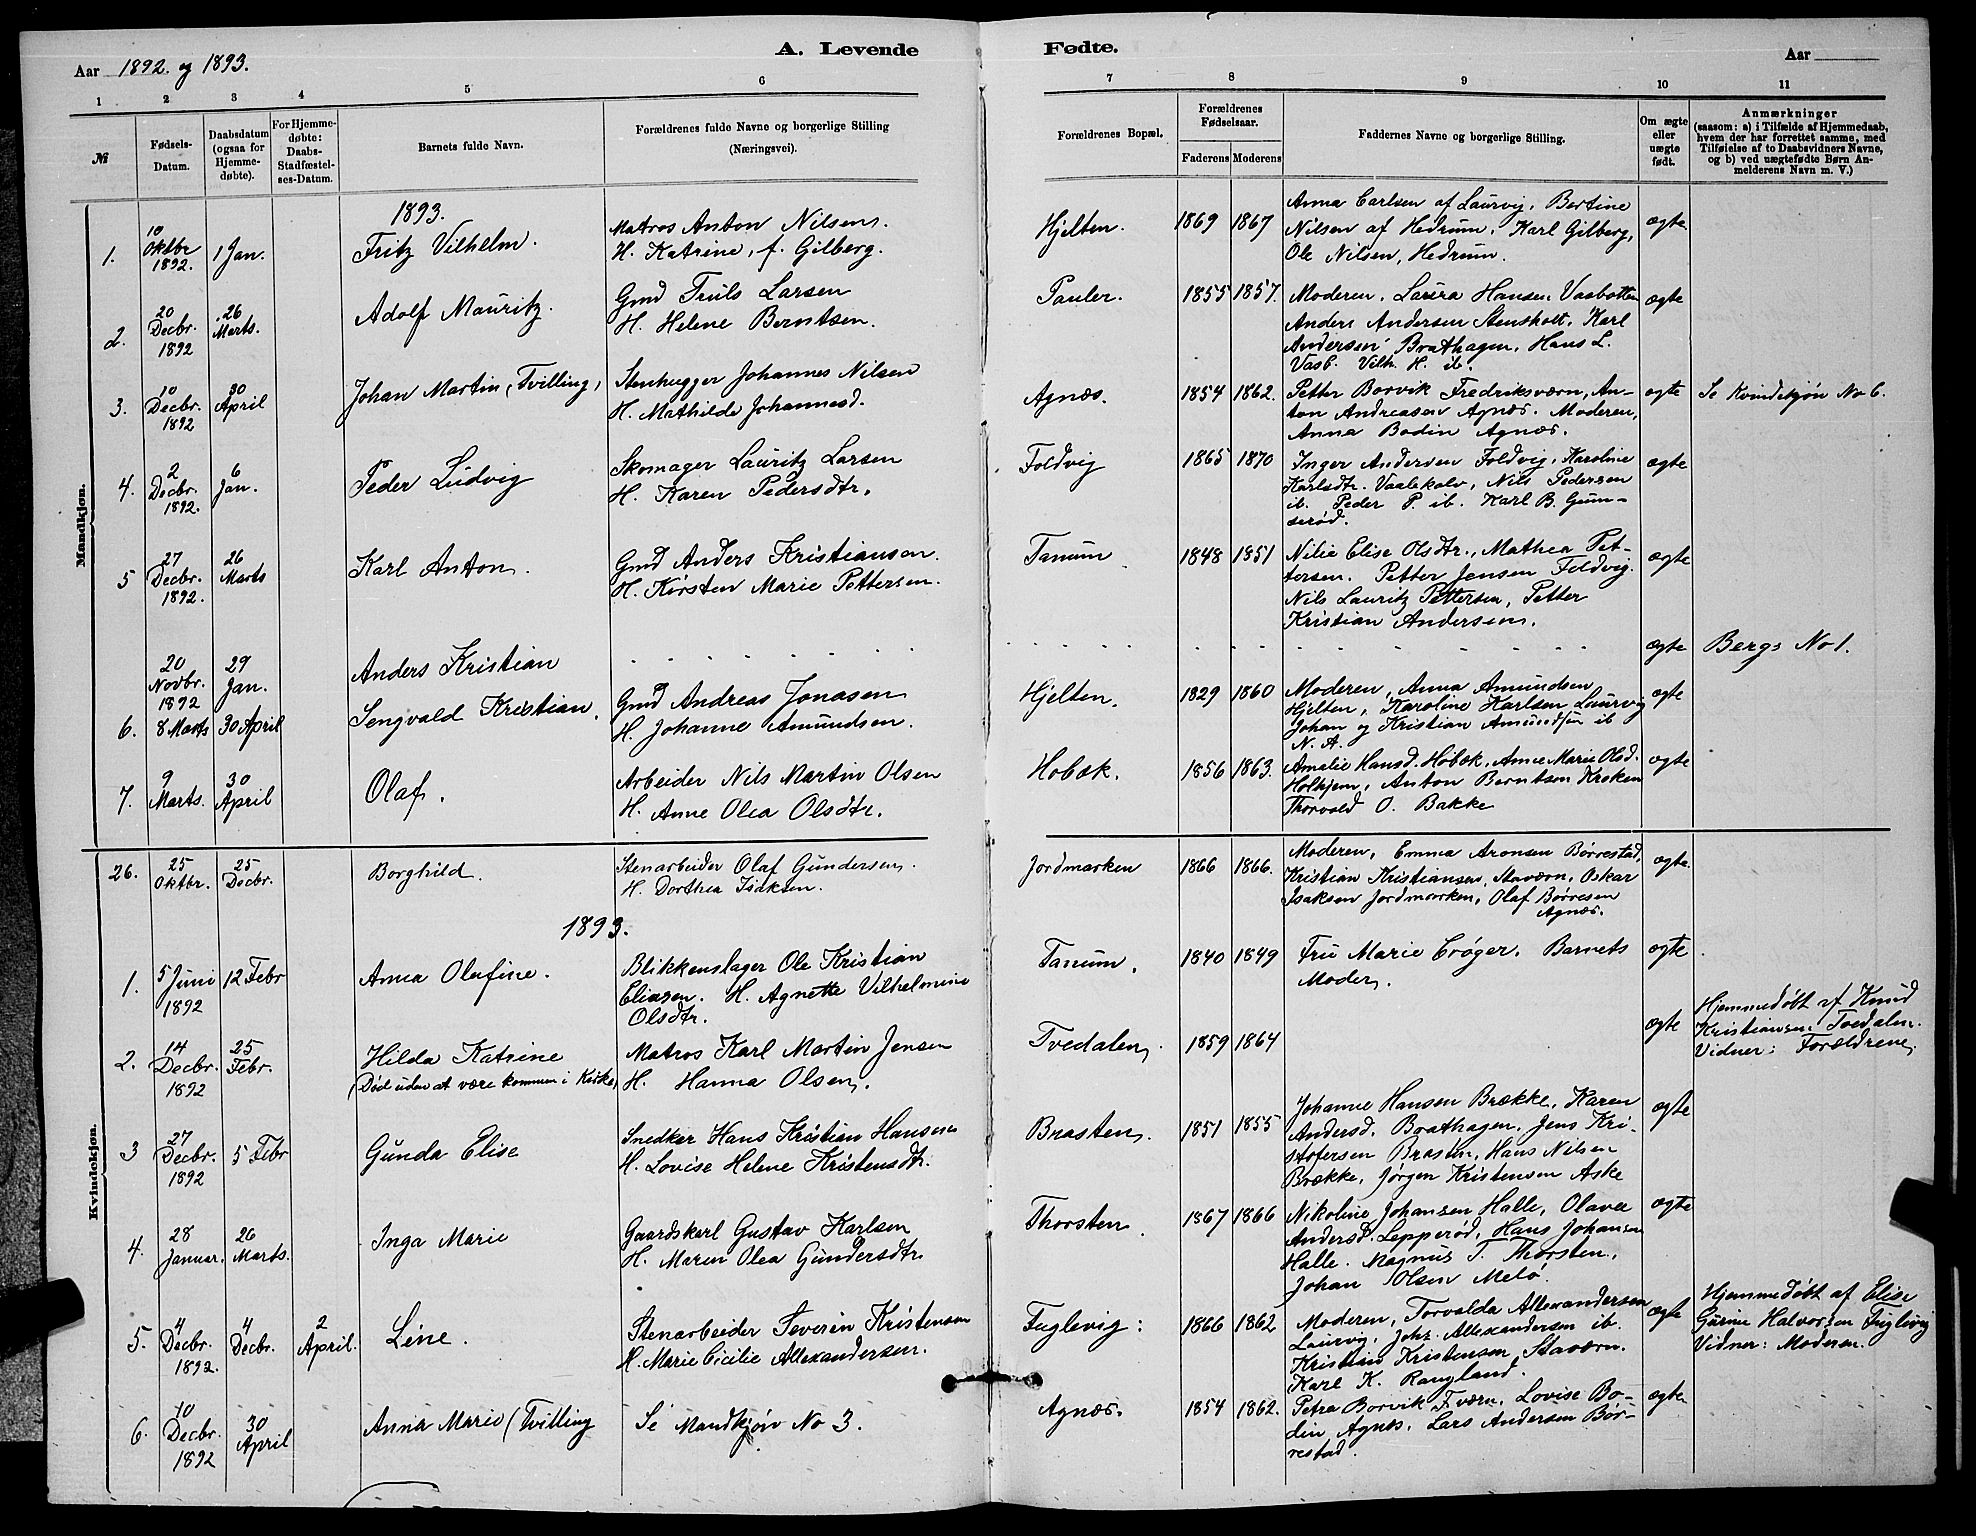 A. Levende Fødte.
Aar 1892. og 1893.
Aar
1 2 3 4 5 6 7 8 9 10 11
№
Fødsels-Datum.
Daabsdatum (ogsaa for Hjemme-døbte).
For Hjemme-døbte: Daabs-Stadfæstel-ses-Datum.
Barnets fulde Navn.
Forældrenes fulde Navne og borgerlige Stilling (Næringsvei).
Forældrenes Bopæl.
Forældrenes Fødselsaar.
Faderens Moderens
Faddernes Navne og borgerlige Stilling.
Om ægte eller uægte født.
Anmærkninger
(saasom: a) i Tilfælde af Hjemmedaab,
hvem der har forrettet samme, med
Tilføielse af to Daabsvidners Navne,
og b) ved uægtefødte Børn An-
melderens Navn m. V.)
Mandkjøn.
1893.
1. 10 Oktbr 1892. 1 Jan. Fritz Vilhelm.
Matros Anton Nilsen.
H. Katrine, f. Gilberg.
Hjelten. 1869 1867
Anna Carlsen af Laurvig, Bertine
Nilsen af Hedrum, Karl Gilberg,
Ole Nilsen, Hedrum.
ægte
2. 20 Decbr. 1892 26 Marts. Adolf Mauritz.
Gmd Truls Larsen
H. Helene Berntsen.
Pauler. 1855 1857.
Moderen, Laura Hansen Vasbotten
Anders Andersen Stensholt, Karl
Andersen Brathagen, Hans L.
Vasb. Vilh. H. ib.
ægte
3. 10 Decbr. 1892 30 April Johan Martin (Tvilling)
Stenhugger Johannes Nilsen
H. Mathilde Johannesd.
Agnæs. 1854 1862.
Petter Borvik Fredriksværn, An-
ton Andreasen Agnæs. Moderen,
Anna Bodin Agnæs.
ægte Se Kvindekjøn No 6.
4. 2 Decbr. 1892. 6 Jan. Peder Ludvig
Skomager Lauritz Larsen
H. Karen Pedersdtr.
Foldvig 1865 1870
Inger Andersen Foldvig, Karoline
Karlsdtr. Vaalekolv, Nils Pedersen
ib. Peder P. ib. Karl B. Gum-
serød.
ægte
5 27 Decbr. 1892. 26 Marts Karl Anton.
Gmd Anders Kristiansen.
H. Kirsten Marie Pettersen.
Tanum 1848 1851
Nilie Elise Olsdtr., Mathea Pet-
tersen. Petter Jensen Foldvig.
Nils Lauritz Pettersen, Petter
Kristian Andersen.
ægte
20 Novbr. 1892 29 Jan. Anders Kristian
ægte Bergs No 1.
6. 8 Marts 30 April Sengvald Kristian.
Gmd Andreas Jonasen
H. Johanne Amundsen.
Hjelten. 1829 1860
Moderen, Anna Amundsen
Hjelten, Karoline Karlsen Laurvig
Johan og Kristian Amundsen ib
N. A.
ægte
7. 9 Marts. 30 April Olaf.
Arbeider Nils Martin Olsen
H. Anne Olea Olsdtr.
Hobæk. 1856 1863.
Amalie Hansd. Hobæk, Anne Marie Olsd.
Holhjem, Anton Berntsen Kroken
Thorvald O. Bakke
ægte
Kvindekjøn.
26. 25 Oktbr. 25 Decbr. Borghild.
Stenarbeider Olaf Gundersen.
H. Dorthea Isaksen.
Jordmarken 1866 1866.
Moderen, Emma Aronsen Børrestad,
Kristian Kristiansen, Staværn, Oskar
Isaksen Jordmarken, Olaf Børresen
Agnæs.
ægte
1893.
1. 5 Juni 1892 12 Febr Anna Olafine.
Blikkenslager Ole Kristian
Eliasen. H. Agnette Vilhelmine
Olsdtr.
Tanum. 1840 1849
Fru Marie Crøger. Barnets
Moder.
ægte
2. 14 Decbr. 1892 25 Febr. Hilda Katrine
(Død uden at være kommen i Kirke)
Matros Karl Martin Jensen
H. Hanna Olsen.
Tvedalen 1859 1864
ægte
Hjemmedøbt af Knud
Kristiansen Tvedalen.
Vidner: Forældrene.
3 27 Decbr. 1892 5 Febr Gunda Elise
Snedker Hans Kristian Hansen
H. Lovise Helene Kristensdtr.
Brasten. 1851 1855
Johanne Hansen Brække, Karen
Andersd. Brathagen, Jens Kri-
stofersen Brasten, Hans Nilsen
Brække, Jørgen Kristensen Aske
ægte
4. 28 Januar. 26 Marts. Inga Marie
Gaardskarl Gustav Karlsen
H. Maren Olea Gundersdtr.
Thorsten 1867 1866
Nikoline Johansen Halle, Olava
Andersd. Lepperød, Hans Johansen
Halle. Magnus T. Thorsten,
Johan Olsen Melø.
ægte
5. 4 Decbr. 1892. 4 Decbr. 2 April. Line.
Stenarbeider Severin Kristensen
H. Marie Cicilie Allexandersen.
Fuglevig: 1866 1862
Moderen, Torvalda Allexandersen
Laurvig, Johs. Allexandersen ib.
Kristian Kristensen Staværn.
Karl K. Rangland.
ægte
Hjemmedøbt af Elise
Gurine Halvorsen Fuglevig
Vidner: Moderen.
6. 10 Decbr. 1892 30 April Anna Marie (Tvilling
Se Mandkjøn No 3.
Agnæs. 1854 1862.
Petra Borvik F.værn, Lovise Bo-
din Agnæs, Lars Andersen Bør-
restad.
ægte